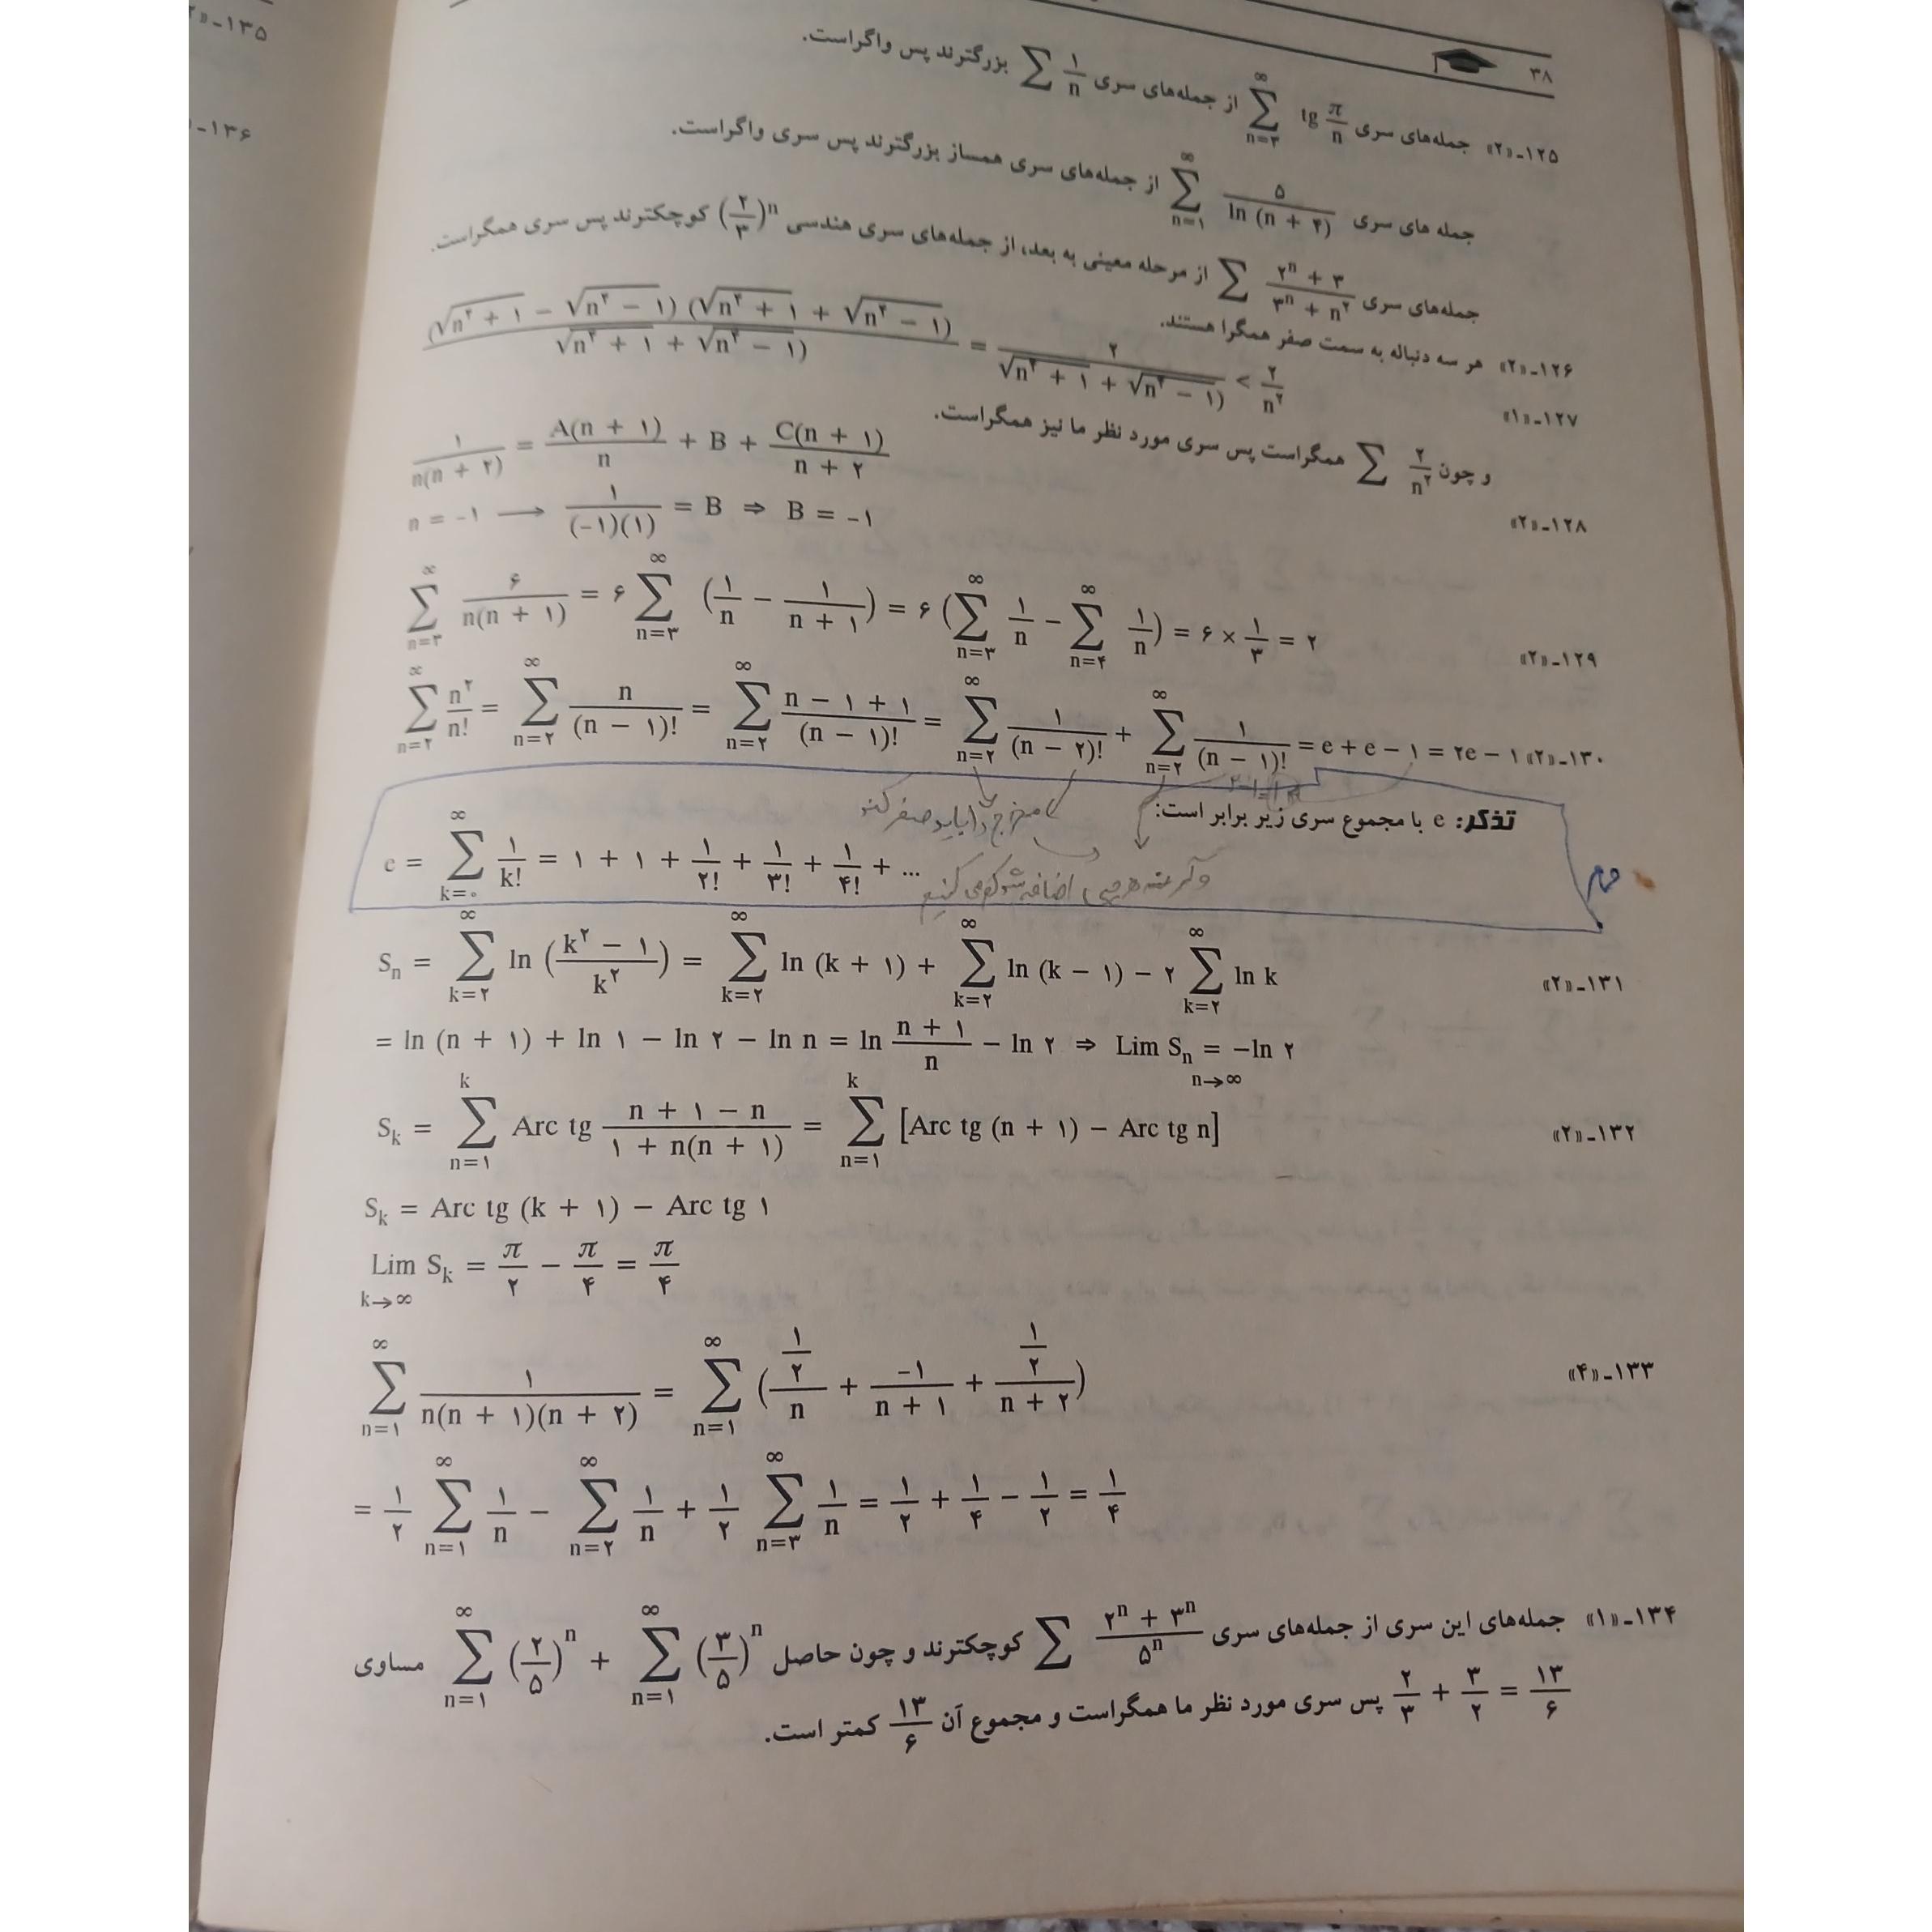 ۳۸
۱۲۵ـ«۲» جمله‌های سری ∑_{n=۳}^{∞} tg π/n از جمله‌های سری ∑ ۱/n بزرگترند پس واگراست.
جمله های سری ∑_{n=۱}^{∞} ۵/ln (n + ۴) از جمله‌های سری همساز بزرگترند پس سری واگراست.
جمله‌های سری ∑ (۲^n + ۳)/(۳^n + n^۲) از مرحله معینی به بعد، از جمله‌های سری هندسی (۲/۳)^n کوچکترند پس سری همگراست.
۱۲۶ـ«۲» هر سه دنباله به سمت صفر همگرا هستند.
۱۲۷ـ«۱» (√(n^۴ + ۱) − √(n^۴ − ۱)) (√(n^۴ + ۱) + √(n^۴ − ۱)) / (√(n^۴ + ۱) + √(n^۴ − ۱)) = ۲/(√(n^۴ + ۱) + √(n^۴ − ۱)) < ۲/n^۲
و چون ∑ ۲/n^۲ همگراست پس سری مورد نظر ما نیز همگراست.
۱۲۸ـ«۲» ۱/(n(n + ۲)) = A(n + ۱)/n + B + C(n + ۱)/(n + ۲)
n = −۱ ⟶ ۱/((−۱)(۱)) = B ⇒ B = −۱
۱۲۹ـ«۲» ∑_{n=۳}^{∞} ۶/(n(n + ۱)) = ۶ ∑_{n=۳}^{∞} (۱/n − ۱/(n + ۱)) = ۶ (∑_{n=۳}^{∞} ۱/n − ∑_{n=۴}^{∞} ۱/n) = ۶ × ۱/۳ = ۲
۱۳۰ـ«۲» ∑_{n=۲}^{∞} n^۲/n! = ∑_{n=۲}^{∞} n/(n − ۱)! = ∑_{n=۲}^{∞} (n − ۱ + ۱)/(n − ۱)! = ∑_{n=۲}^{∞} ۱/(n − ۲)! + ∑_{n=۲}^{∞} ۱/(n − ۱)! = e + e − ۱ = ۲e − ۱
تذکر: e با مجموع سری زیر برابر است:
مخرج را باید صفر کنه
e = ∑_{k=۰}^{∞} ۱/k! = ۱ + ۱ + ۱/۲! + ۱/۳! + ۱/۴! + ...
اضافه شد کم می کنیم
مهم
۱۳۱ـ«۲» S_n = ∑_{k=۲}^{∞} ln ((k^۲ − ۱)/k^۲) = ∑_{k=۲}^{∞} ln (k + ۱) + ∑_{k=۲}^{∞} ln (k − ۱) − ۲ ∑_{k=۲}^{∞} ln k
= ln (n + ۱) + ln ۱ − ln ۲ − ln n = ln (n + ۱)/n − ln ۲ ⇒ Lim_{n→∞} S_n = −ln ۲
۱۳۲ـ«۲» S_k = ∑_{n=۱}^{k} Arc tg (n + ۱ − n)/(۱ + n(n + ۱)) = ∑_{n=۱}^{k} [Arc tg (n + ۱) − Arc tg n]
S_k = Arc tg (k + ۱) − Arc tg ۱
Lim_{k→∞} S_k = π/۲ − π/۴ = π/۴
۱۳۳ـ«۴» ∑_{n=۱}^{∞} ۱/(n(n + ۱)(n + ۲)) = ∑_{n=۱}^{∞} ((۱/۲)/n + −۱/(n + ۱) + (۱/۲)/(n + ۲))
= ۱/۲ ∑_{n=۱}^{∞} ۱/n − ∑_{n=۲}^{∞} ۱/n + ۱/۲ ∑_{n=۳}^{∞} ۱/n = ۱/۲ + ۱/۴ − ۱/۲ = ۱/۴
۱۳۴ـ«۱» جمله‌های این سری از جمله‌های سری ∑ (۲^n + ۳^n)/۵^n کوچکترند و چون حاصل ∑_{n=۱}^{∞} (۲/۵)^n + ∑_{n=۱}^{∞} (۳/۵)^n مساوی
۲/۳ + ۳/۲ = ۱۳/۶ پس سری مورد نظر ما همگراست و مجموع آن ۱۳/۶ کمتر است.
۱۳۵ـ«
۱۳۶ـ